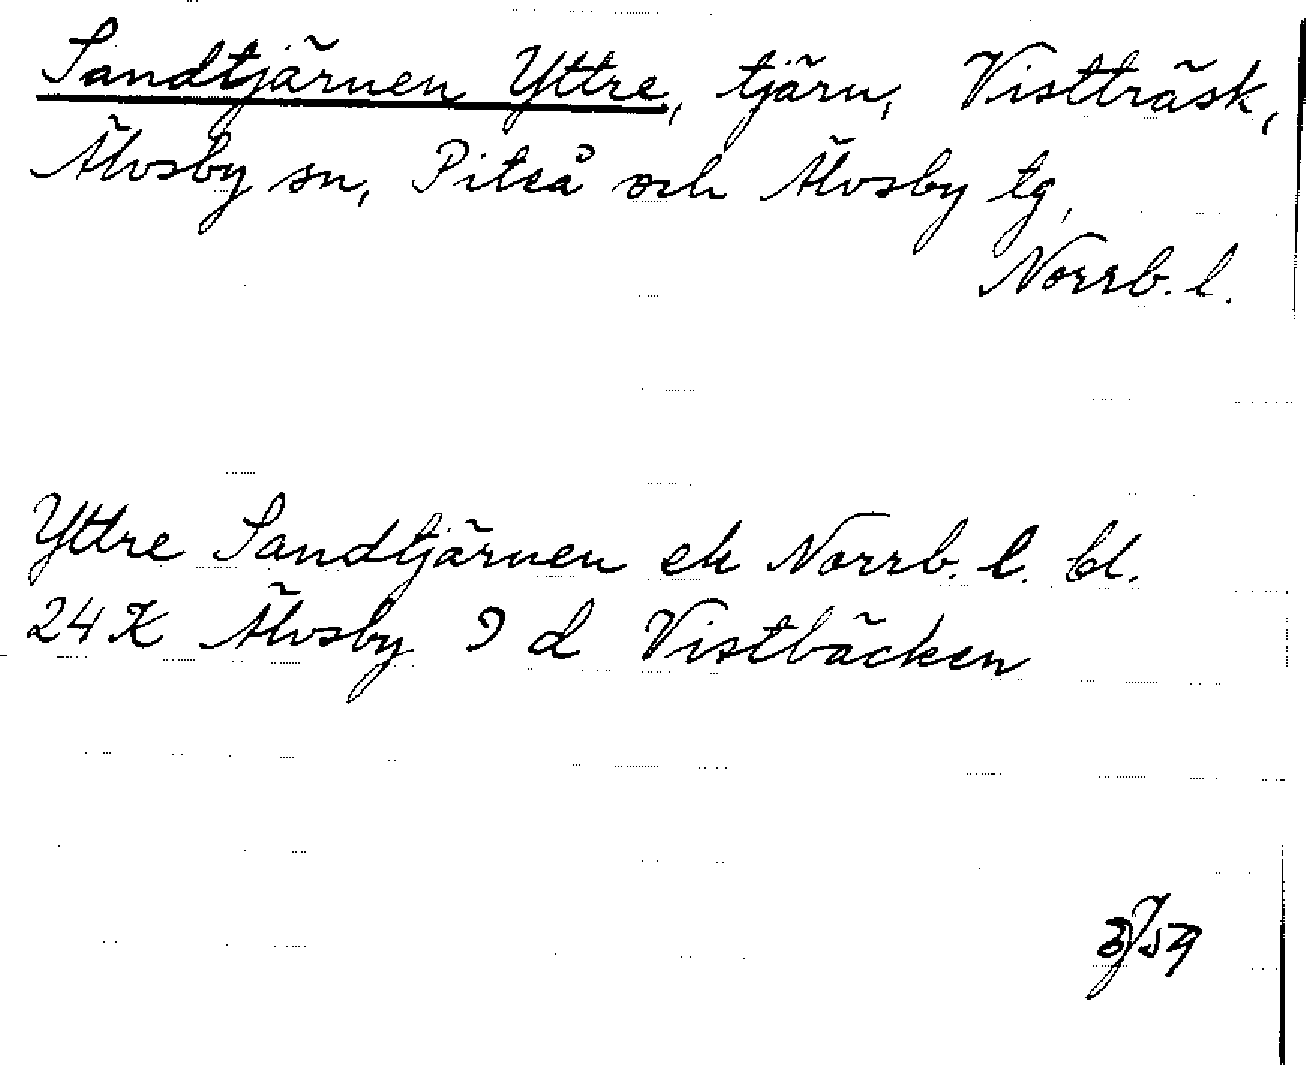 Sandtjärnen Yttre, tjärn, Vistträsk,
Älvsby sn, Piteå och Älvsby tg,
Norrb. l.
Yttre Sandtjärnen ek Norrb. l. bl.
24 K Älvsby 9 d Vistbäcken